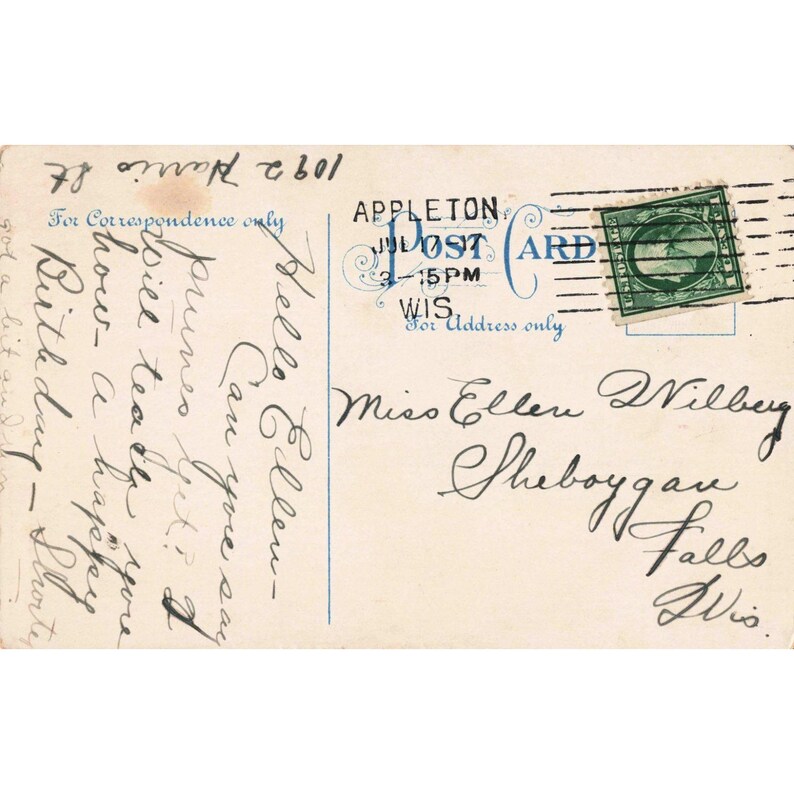 1092 Harris St
For Correspondence only
Hello Ellen –
Can you say
prunes yet? I
will teach you
how – a happy
Birthday – Shorty
got a bit and
APPLETON,
JUL 17 17
3 – 15 PM
WIS.
POST CARD
For Address only
U.S. POSTAGE
Miss Ellen Wilberg
Sheboygan
Falls
Wis.